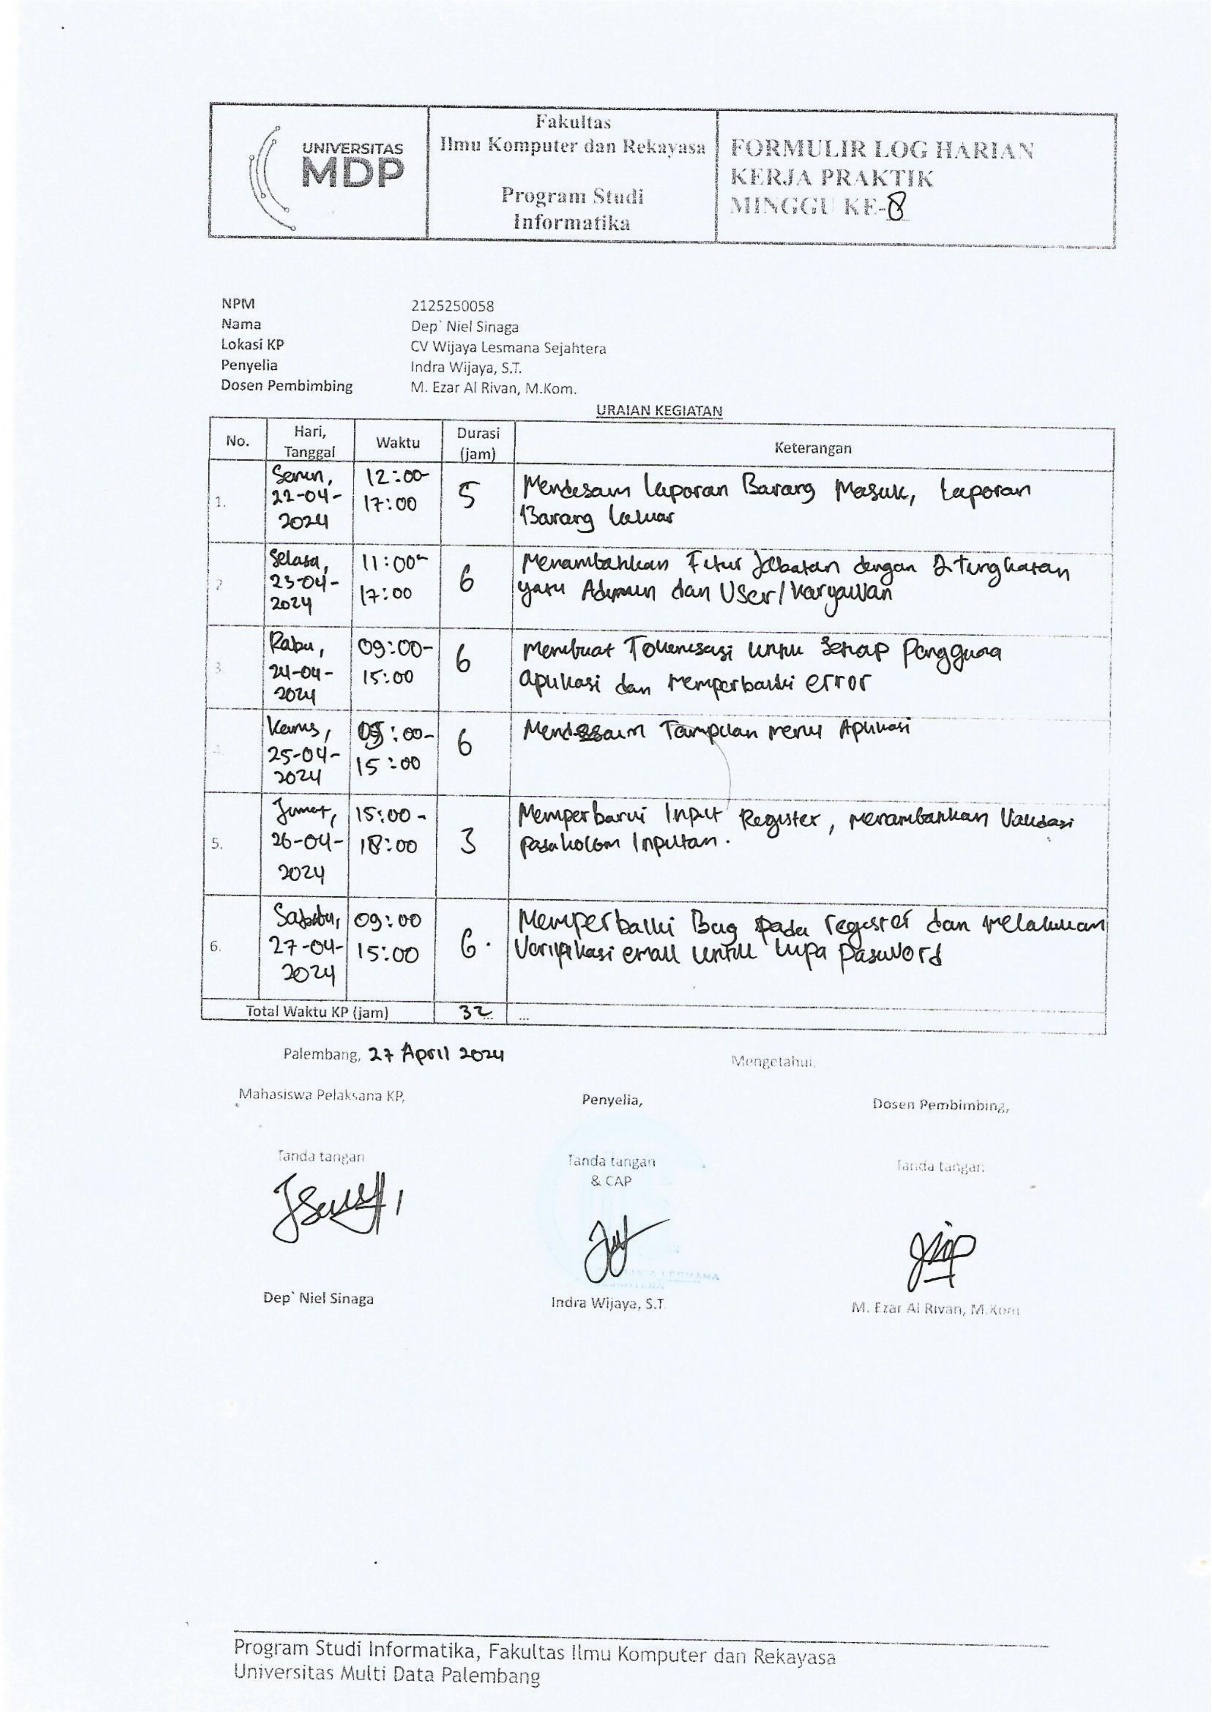 UNIVERSITAS
MDP
Fakultas
Ilmu Komputer dan Rekayasa
Program Studi
Informatika
FORMULIR LOG HARIAN
KERJA PRAKTIK
MINGGU KE-8
NPM 2125250058
Nama Dep` Niel Sinaga
Lokasi KP CV Wijaya Lesmana Sejahtera
Penyelia Indra Wijaya, S.T.
Dosen Pembimbing M. Ezar Al Rivan, M.Kom.
URAIAN KEGIATAN
No. Hari, Tanggal Waktu Durasi (jam) Keterangan
1. Senin, 22-04-2024 12:00-17:00 5 Mendesain Laporan Barang Masuk, Laporan
Barang keluar
2 Selasa, 23-04-2024 11:00-17:00 6 Menambahkan Fitur Jabatan dengan 2 tingkatan
yaitu Admin dan User/Karyawan
3. Rabu, 24-04-2024 09:00-15:00 6 Membuat Tokenisasi untuk Setiap Pengguna
aplikasi dan memperbaiki error
4. Kamis, 25-04-2024 09:00-15:00 6 Mendesain Tampilan menu Aplikasi
5. Jumat, 26-04-2024 15:00-18:00 3 Memperbarui Input Register, menambahkan Validasi
pada kolom Inputan.
6. Sabtu, 27-04-2024 09:00 15:00 6. Memperbaiki Bug pada register dan melakukan
Verifikasi email untuk lupa password
Total Waktu KP (jam) 32 ...
Palembang, 27 April 2024
Mengetahui,
Mahasiswa Pelaksana KP, Penyelia, Dosen Pembimbing,
Tanda tangan Tanda tangan Tanda tangan
& CAP
Dep` Niel Sinaga Indra Wijaya, S.T. M. Ezar Al Rivan, M.Kom
Program Studi Informatika, Fakultas Ilmu Komputer dan Rekayasa
Universitas Multi Data Palembang